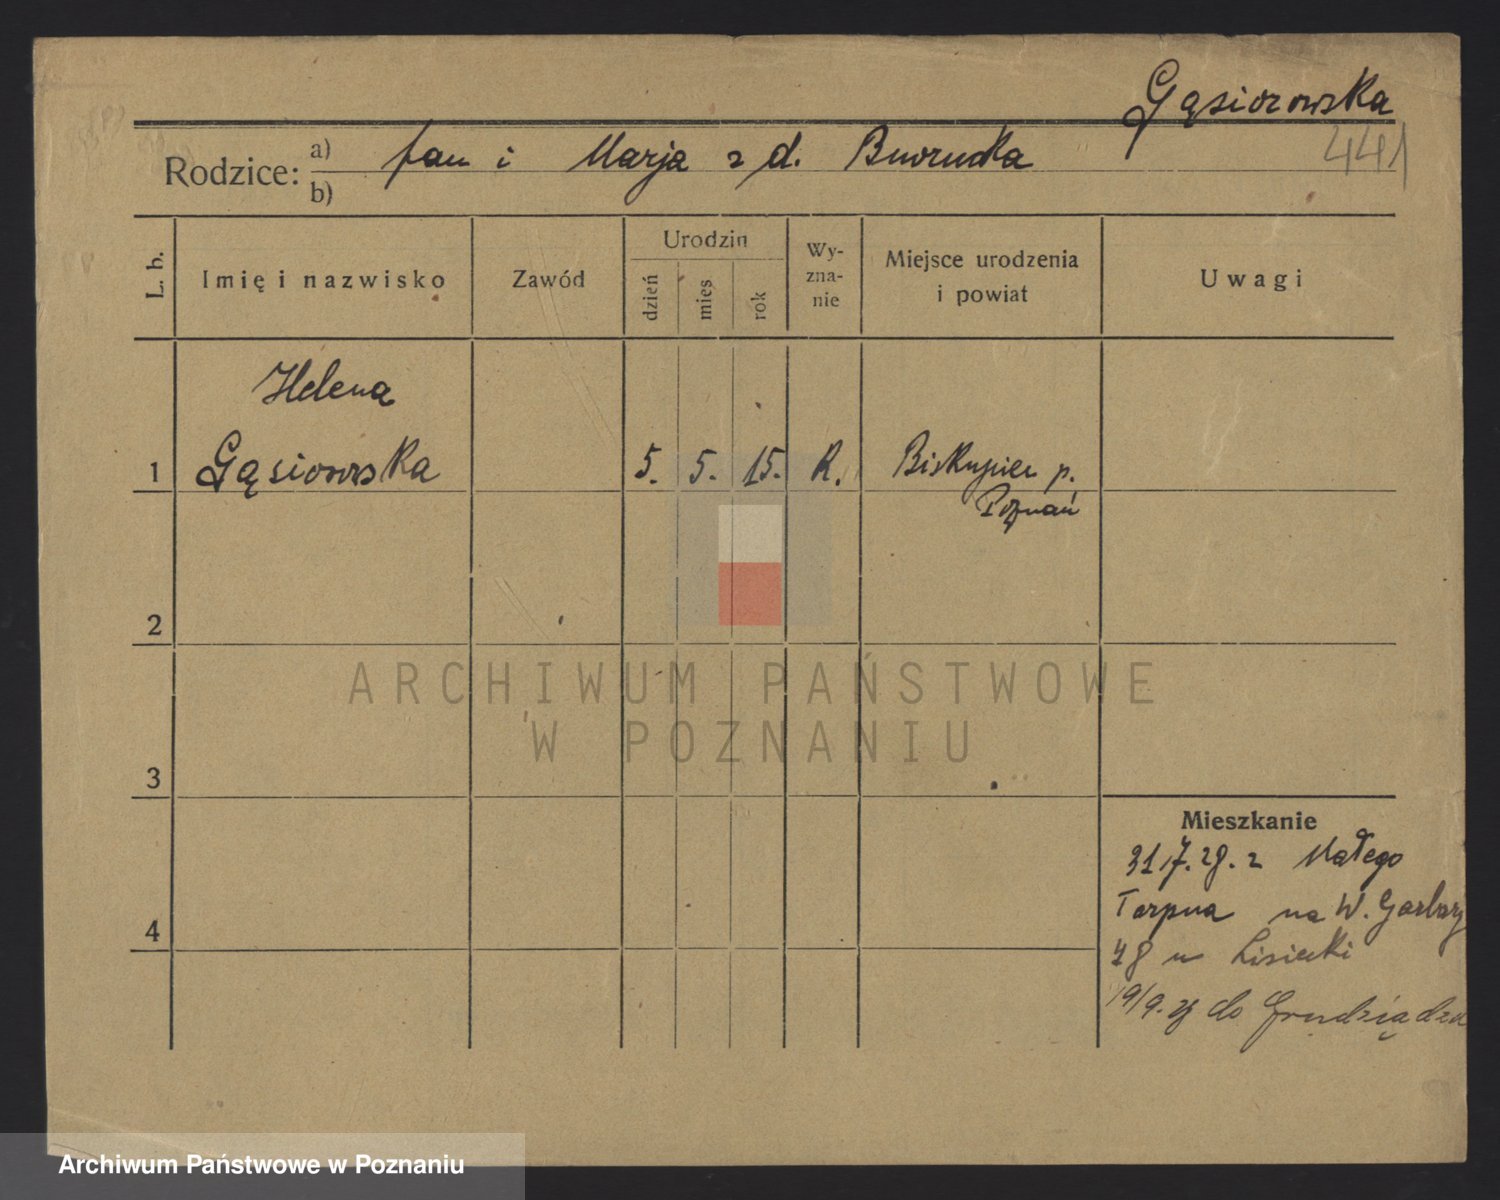 Gąsiorowska
441
Rodzice: a) b) Jan i Marja z d.
L. b.
Imię i nazwisko
Zawód
Urodzin
dzień
mies
rok
Wy-
zna-
nie
Miejsce urodzenia
i powiat
Uwagi
Helena
1 Gąsiorowska 5. 5. 15. R. Biskupice p.
Poznań
2
3
4
Mieszkanie
31.7.28. z Małego
na W. Garbary
48 u Lisiecki
19/9. do Grudziądza
ARCHIWUM PAŃSTWOWE
W POZNANIU
Archiwum Państwowe w Poznaniu